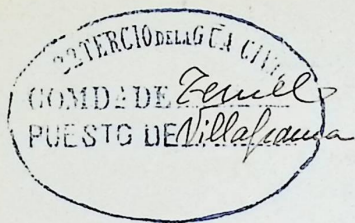 22º TERCIO DE LA G CÍA CIVIL
COMD.ª DE Teruel
PUESTO DE Villafranca